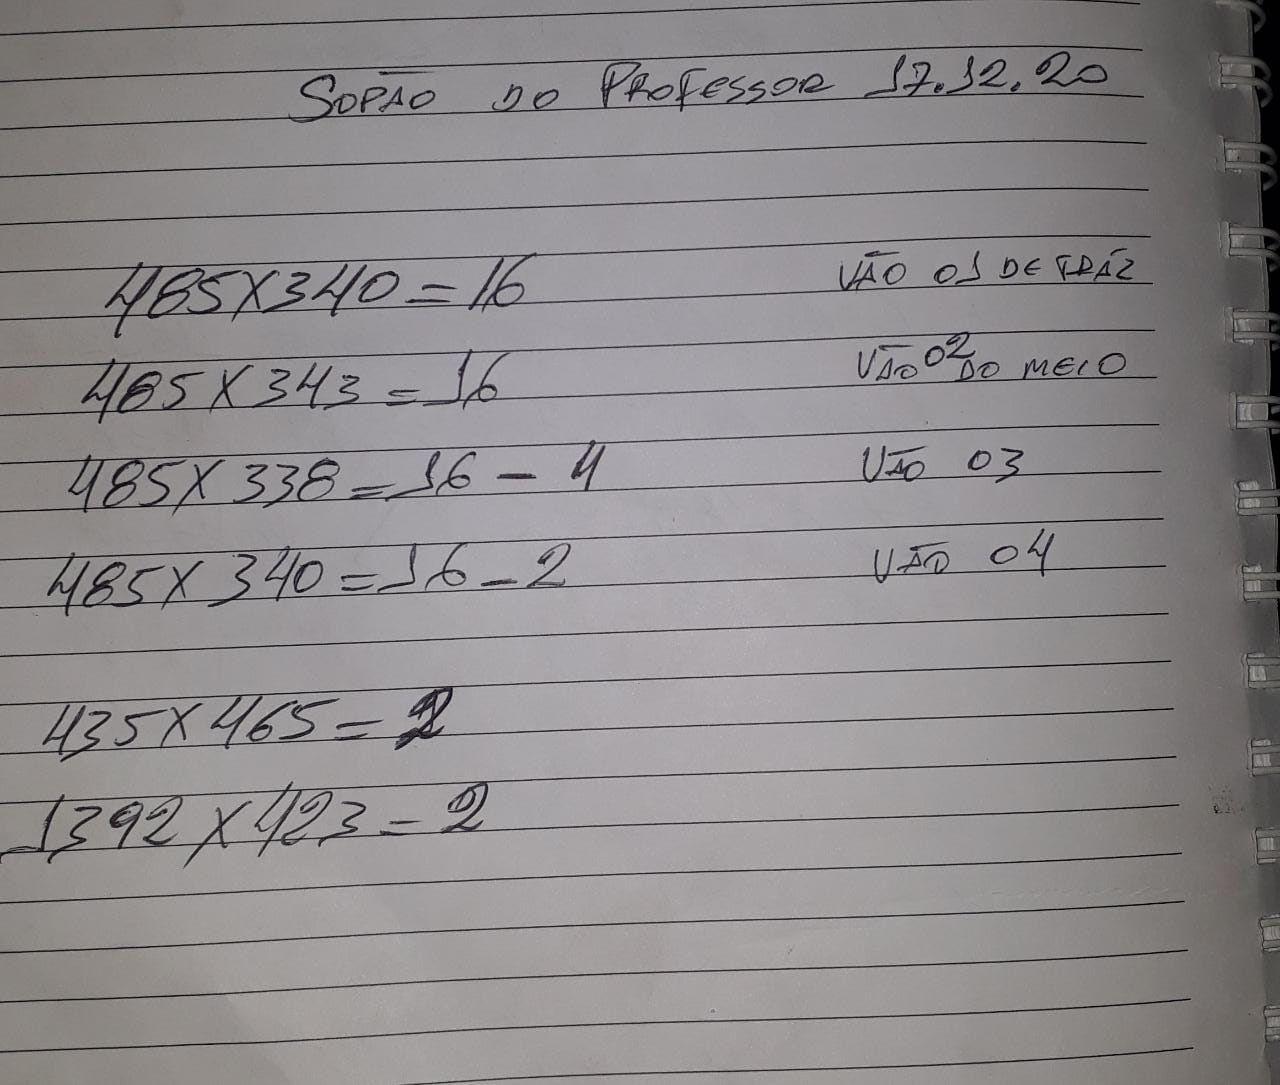 SOPÃO DO PROFESSOR 17.12.20
485X340=16 VÃO 01 DE TRÁZ
485X343=16 VÃO 02 DO MEIO
485X338=16-4 VÃO 03
485X340=16-2 VÃO 04
435X465=2
1392X423=2